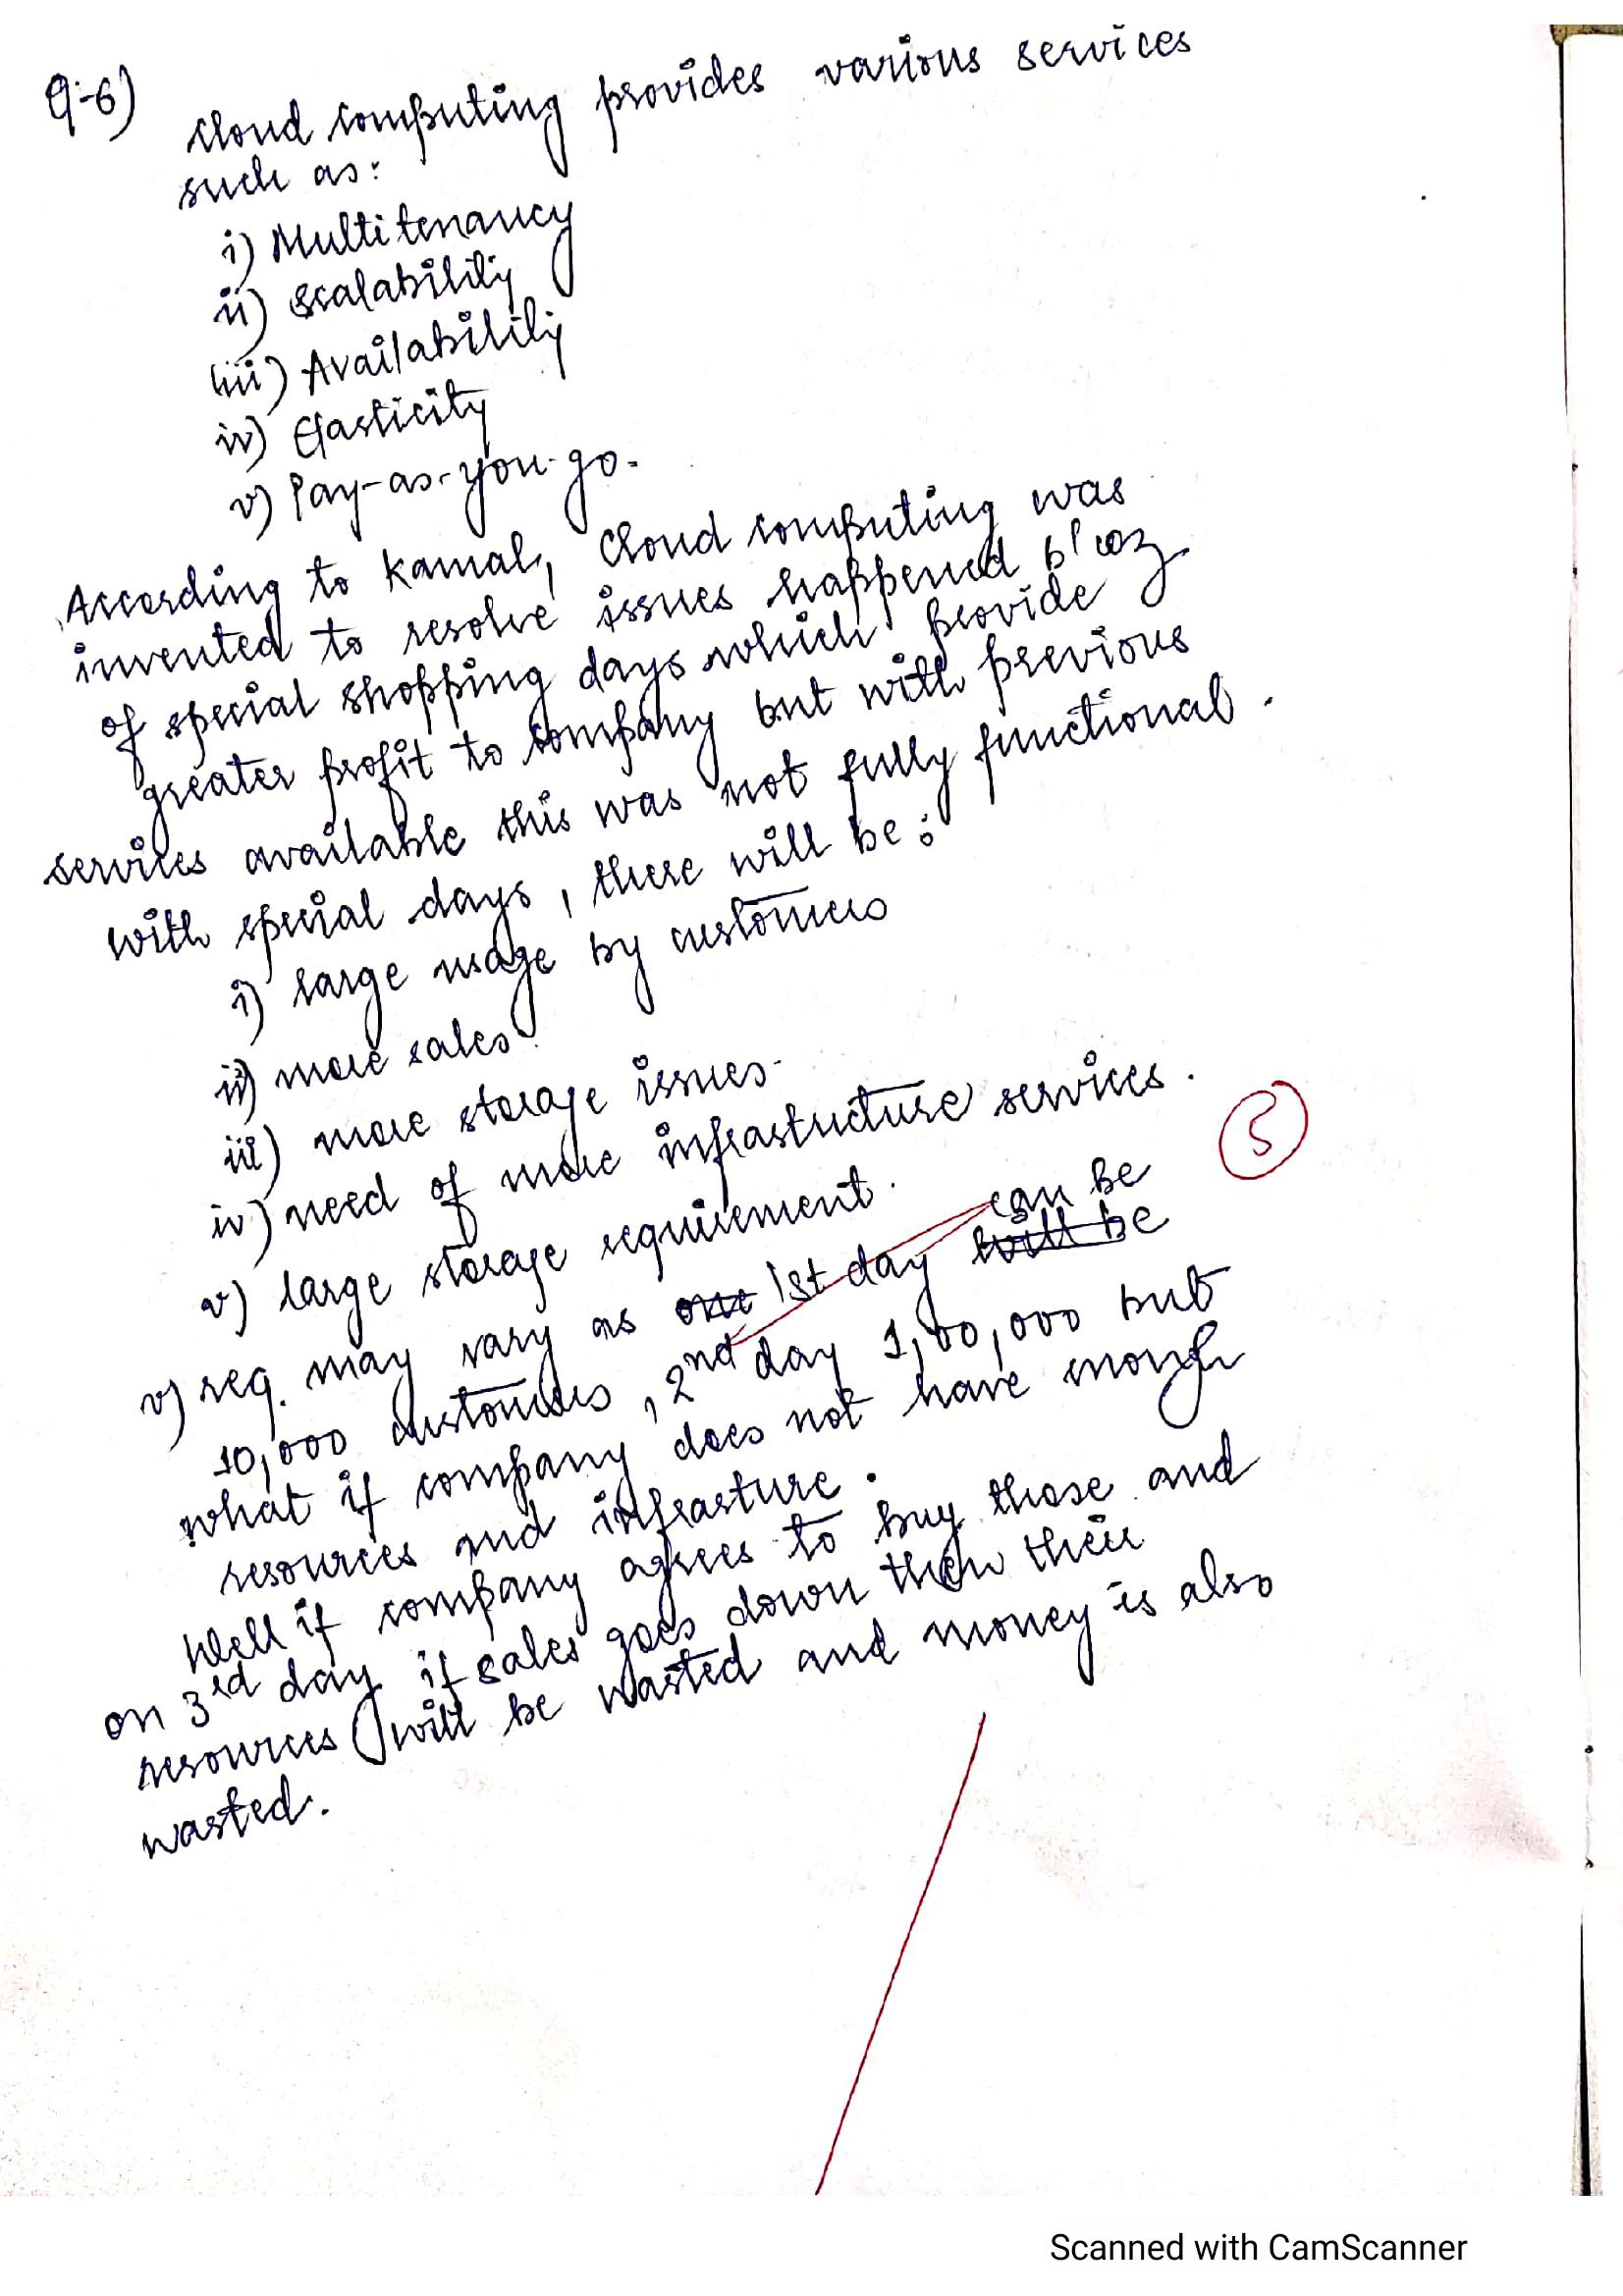 Q-6)
Cloud computing provides various services
such as:
i) Multitenancy
ii) Scalability
iii) Availability
iv) Elasticity
v) Pay-as-you-go.
According to Kamal, Cloud computing was
invented to resolve issues happened b'coz
of special shopping days which provide
greater profit to company but with previous
services available this was not fully functional.
with special days, there will be:
i) large usage by customers
ii) more sales.
iii) more storage issues.
iv) need of more infrastructure services.
5
v) large storage requirement.
can be
v) req. may vary as one 1st day will be
10,000 customers, 2nd day 1,00,000 but
what if company does not have enough
resources and infrasture.
Well if company agrees to buy those and
on 3rd day if sales goes down then their
resources will be wasted and money is also
wasted.
Scanned with CamScanner